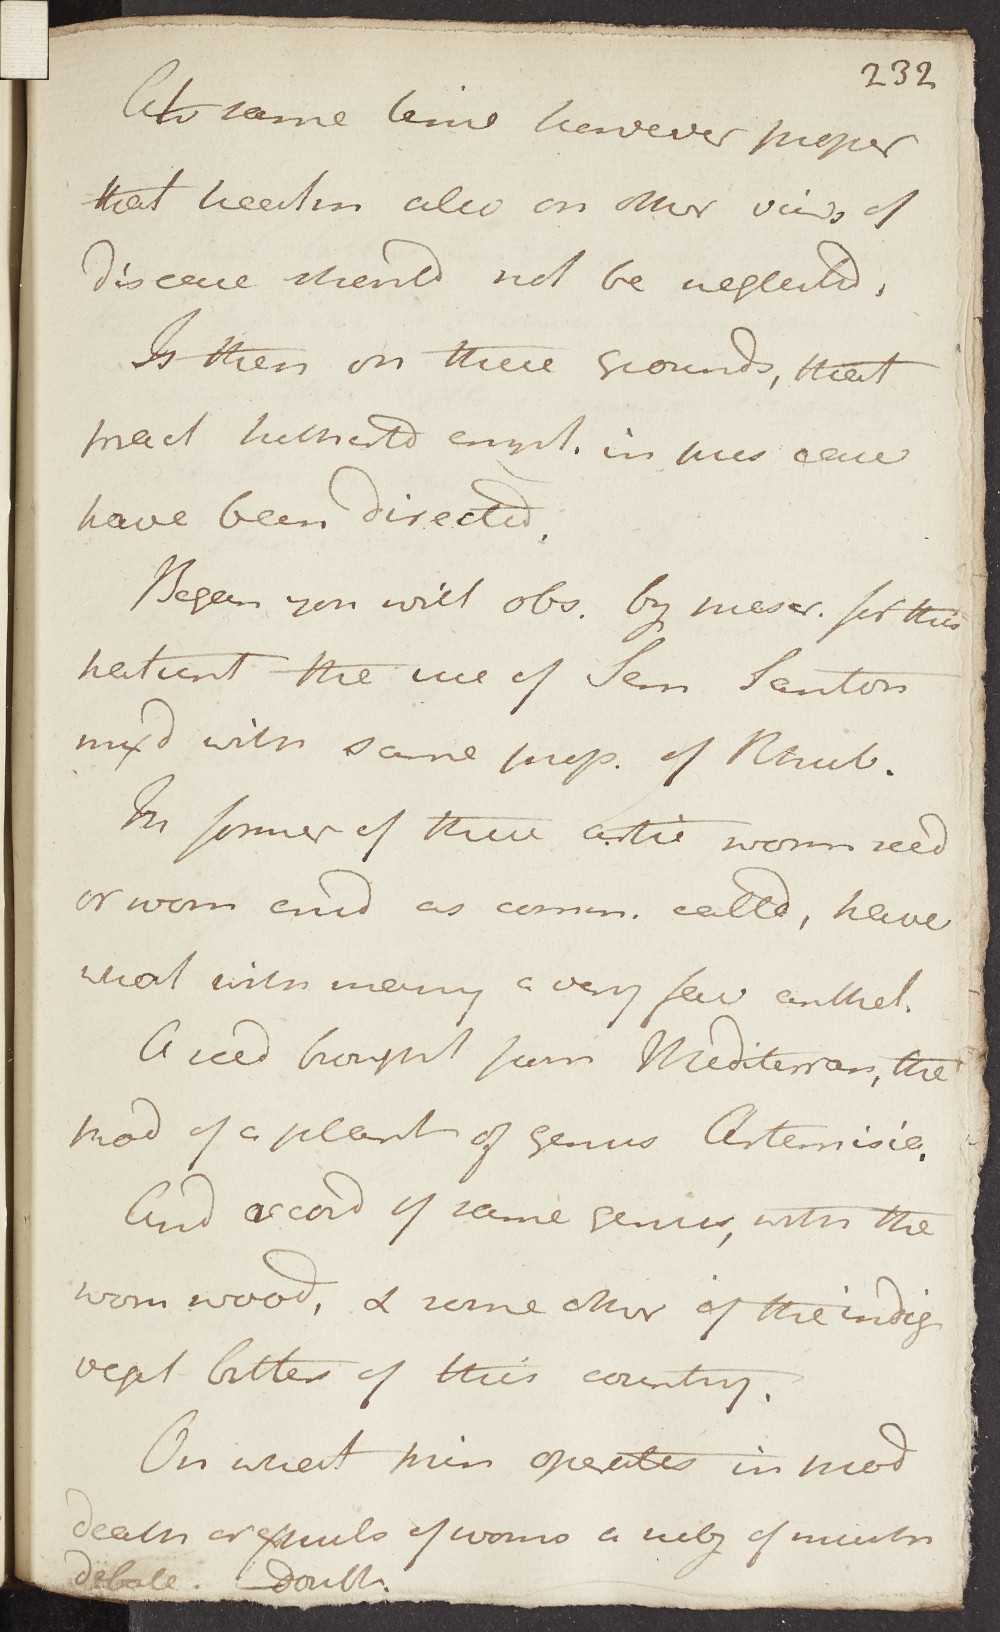 232
At same time however proper
that health also on other views of
disease should not be neglectd,
Is then on these grounds, that
pract hithertd empl. in pres case
have been directed.
Began you will obs. by prescr. for this
patient the use of Sem Santon
mixd with some prep. of Rhub.
In former of these artic worm seed
or worm as comm. calld, have
what with many a very fav anthel.
A seed brought from Mediterran, the
prod of a plant of genus Artemisia.
And accord of same genus, with the
worm wood, & some other of the indig
veget bitters of this country.
On what prin operates in prod
death or expuls of worms a subj of much
debate. doubt.